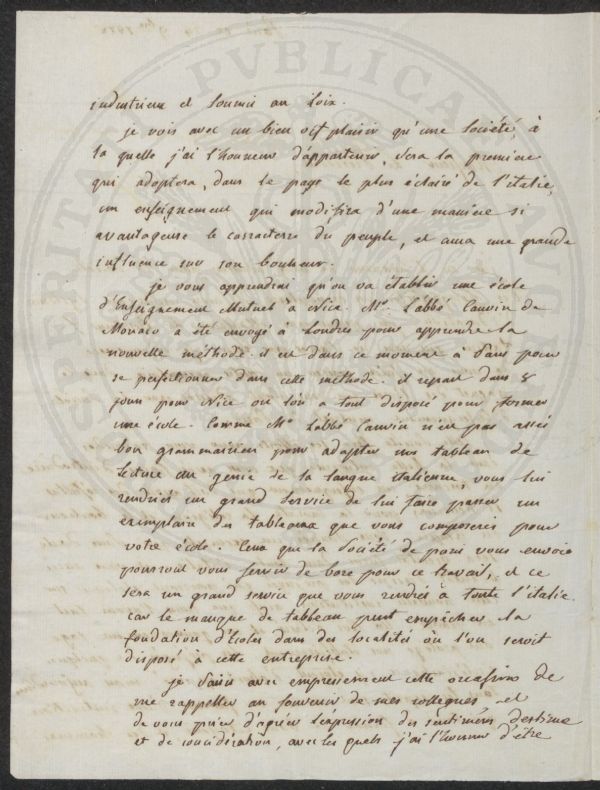 industrieux et soumis au loix.
je vois avec un bien vif plaisir qu'une Société, à
la quelle j'ai l'honneur d'appartenir, sera la première
qui adoptera, dans le page le plus éclairé de l'italie,
un enseignement qui modifira d'une manière si
avantageuse le carractere du peuple, et aura une grande
influence sur son bonheur.
je vous apprendrai qu'on va établir une école
d'Enseignement Mutuel à Nice. Mr. L'abbé Cauvin de
Monaco a été envoyé à Londres pour apprendre la
nouvelle méthode. il est dans ce moment à Paris pour
se perfectionner dans cette méthode. il repart dans 8
jours pour Nice où l'on a tout disposé pour former
une école. Comme Mr L'abbé Cauvin n'est pas assés
bon grammairien pour adapter nos tableau de
lecture au genie de la langue italienne, vous lui
rendriés un grand service de lui faire passer un
exemplaire des tableaux que vous composerés pour
votre école. Ceux que la Société de paris vous envoie
pourront vous servir de base pour ce travail, et ce
sera un grand service que vous rendrés à toute l'italie.
car le manque de tabbeau peut empêcher la
fondation d'Ecoles dans des localités où l'on seroit
disposé à cette entreprise.
je saisis avec empressement cette occasions de
me rappeller au souvenir de mes collegues et
de vous prier d'agréer l'expression des sentimens d'estime
et de concidération, avec les quels j'ai l'honneur d'être
PVBLICA